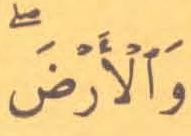 وَٱلْأَرْضَ ۖ